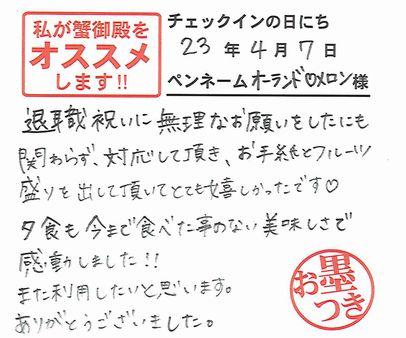 私が蟹御殿を
オススメ
します!!
チェックインの日にち
23年4月7日
ペンネーム オーランド♡メロン様
退職祝いに無理なお願いをしたにも
関わらず、対応して頂き、お手紙とフルーツ
盛りを出して頂いてとても嬉しかったです♡
夕食も今まで食べた事のない美味しさで
感動しました!!
また利用したいと思います。
ありがとうございました。
お墨
つき